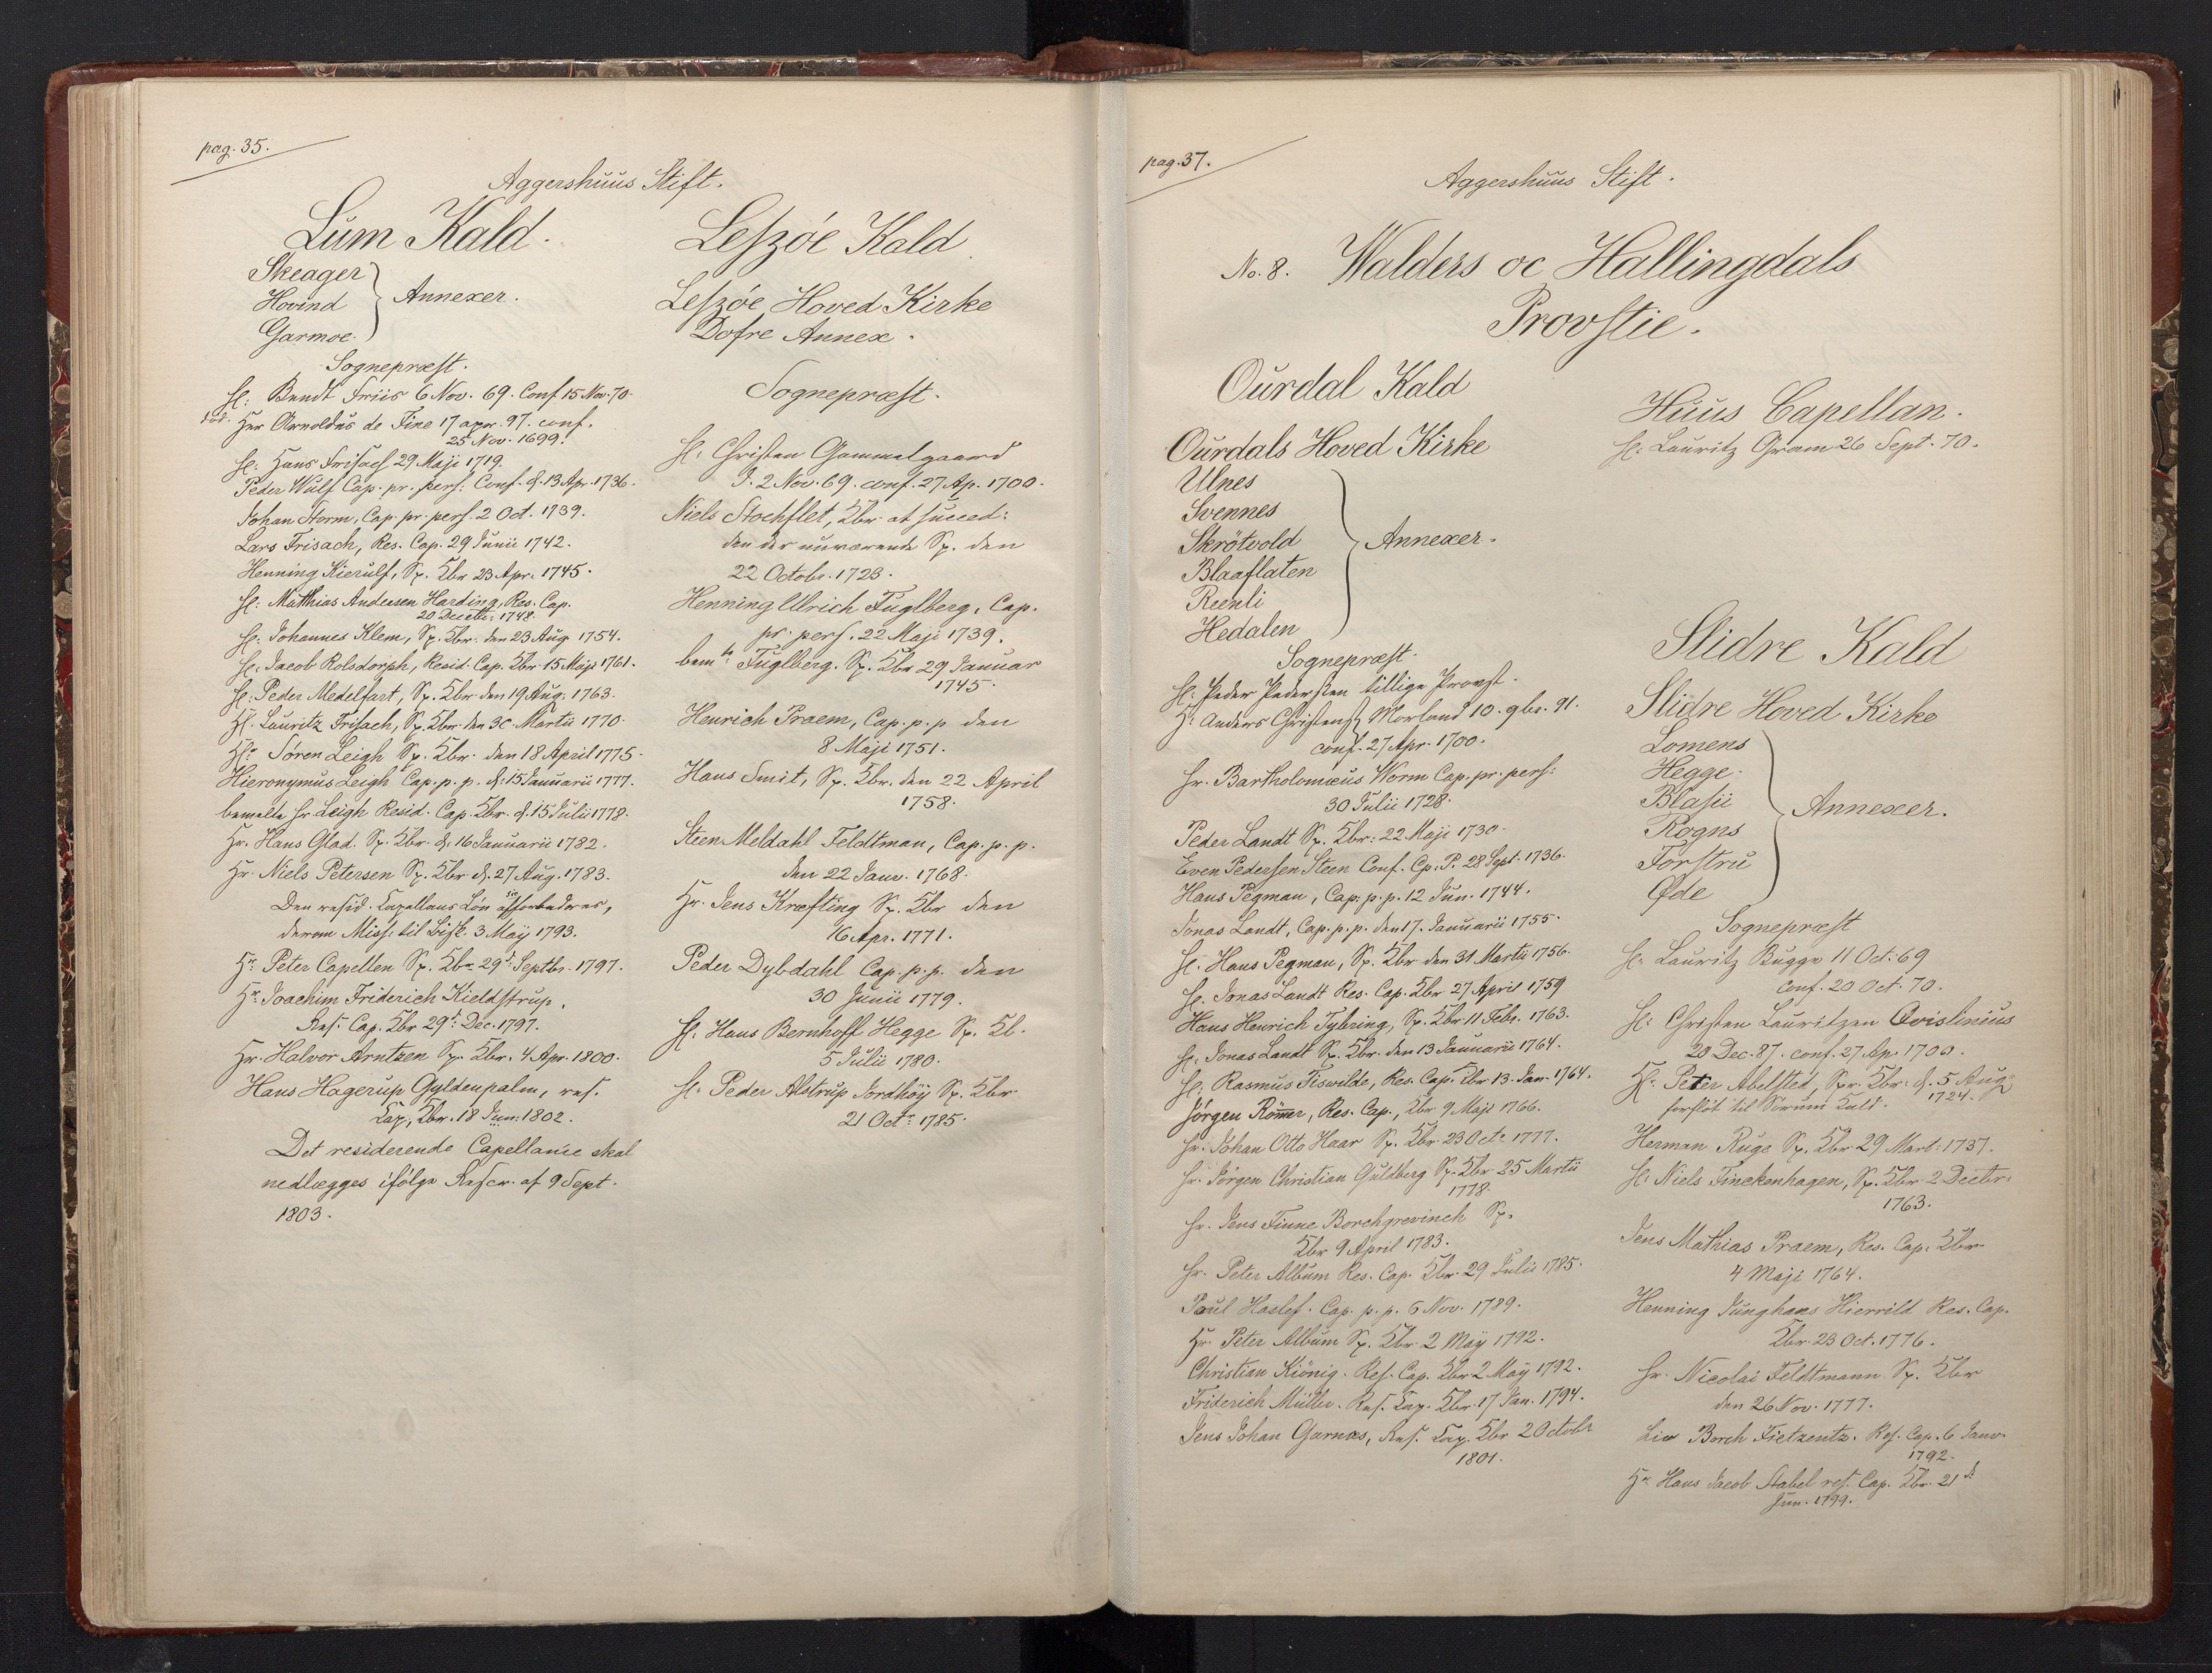 pag. 35.
Aggershuus Stift.
Lüm Kald.
Skeager
Hovind
Garmoe.
Annexer.
Sognepræst.
H: Bendt Friis 6 Nov. 69. Conf 15 Nov. 70.
död. Her Arnoldus de Fine 17 apr. 97. conf.
25 Nov. 1699.
H: Hans Frisach 29 Maji 1719.
Peder Wulf Cap. pr. pers: Conf. d. 13 Apr. 1736.
Johan Storm, Cap. pr. pers. 2 Oct. 1739.
Lars Frisach, Res. Cap. 29 Junii 1742.
Henning Kierulf, Sp. Kbr 23 Apr. 1745.
H: Matthias Andersen Harding, Res. Cap.
20 Decetbr: 1748.
H: Johannes Klem, Sp. Kbr. den 23 Aug. 1754.
H: Jacob Rolsdorph, Resid. Cap. Kbr 15 Maji 1761.
H: Peder Medelfart, Sp. Kbr den 19 Aug. 1763.
Hl. Lauritz Frisach, Sp. Kbr. den 30. Martii 1770.
Hr. Sören Leigh Sp. Kbr. den 18 April 1775.
Hieronymus Leigh Cap. p. p. d. 15 Januarii 1777.
bemelte hr Leigh Resid. Cap. Kbr. d. 15 Julii 1778.
Hr. Hans Glad. Sp. Kbr. d. 16 Januarii 1782.
Hr. Niels Petersen Sp. Kbr d. 27 Aug. 1783.
Den resid. Capellans Lön
derom Miss: til Bisk. 3 Maÿ 1793.
Hr. Peter Capellen Sp. Kbr. 29d: Septbr. 1797.
Hr. Joachim Friderich Kieldstrup.
Res. Cap. Kbr 29d: Dec. 1797.
Hr. Halvor Arntzen Sp. Kbr. 4 Apr. 1800.
Hans Hagerup Gyldenpalm, res.
Cap, Kbr. 18 Jun: 1802.
Det residerende Capellanie skal
nedlægges ifölge Rescr. af 9 Sept.
1803.
Leszöe Kald
Leszöe Hoved Kirke
Dofre Annex.
Sognepræst.
H. Christen Gammelgaard
D. 2 Nov. 69. conf. 27 Ap. 1700.
Niels Stochflet, Kbr. at succed:
den der nuværende Sp. den
22 Octobr. 1723.
Henning Ulrich Fuglberg, Cap.
pr. pers. 22 Maji 1739.
bemte Fuglberg. Sp. Kbr 29 Januar
1745.
Henrich Praem, Cap. p. p den
8 Maji 1751.
Hans Smit, Sp. Kbr. den 22 April
1758.
Steen Meldahl Feldtman, Cap. p. p.
den 22 Janv. 1768.
Hr. Jens Kræfting Sp. Kbr den
16 Apr. 1771.
Peder Dybdahl Cap. p. p. den
30 Junii 1779.
H. Hans Bernhoff Hegge Sp. Kb.
5 Julii 1780.
H. Peder Alstrup Jordhöy Sp. Kbr
21 Octr 1785.
pag. 37.
Aggershuus Stift.
No. 8. Walders oc Hallingdals
Provstie.
Ourdal Kald
Ourdals Hoved Kirke
Ulnes
Svennes
Skrötvold
Blaaflaten
Reenli
Hedalen
Annexer.
Sognepræst.
H. Peder Pedersten tillige Provst.
H. Anders Christens. Morland 10. 9br. 91.
conf. 27 Apr. 1700.
Hr. Bartholomæus Worm Cap. pr. pers:
30 Julii 1728.
Peder Landt Sp. Kbr: 22 Maji 1730.
Even Pedersen Steen Conf. Cp. P. 28 Sept. 1736.
Hans Pegman, Cap. p. p. 12 Jun. 1744.
Jonas Landt, Cap. p. p. den 17. Januarii 1755.
H. Hans Pegman, Sp. Kbr den 31 Martii 1756.
H. Jonas Landt Res. Cap. Kbr 27 April 1759
Hans Henrich Tybring, Sp. Kbr. 11 Febr. 1763.
H. Jonas Landt Sp. Kbr. den 13 Januarii 1764.
H. Rasmus Tiswilde, Res. Cap. Kbr 13. Jan. 1764.
Jörgen Römer, Res. Cap., Kbr 9 Maji 1766.
Hr. Johan Otto Haar Sp. Kbr 23 Octr. 1777.
Hr. Jörgen Christian Guldberg Sp. Kbr 25 Martii
1778.
Hr. Jens Finne Borchgrevinch Sp.
Kbr 9 April 1783.
Hr. Peter Album Res. Cap. Kbr. 29 Julii 1785.
Paul Haslef. Cap. p. p. 6 Nov. 1789.
Hr. Peter Album Sp. Kbr 2 Maÿ 1792.
Christian Kiönig. Res. Cap. Kbr 2 Maÿ 1792.
Friderich Müller. Res. Cap. Kbr. 17 Jan. 1794.
Jens Johan Garnæs, Res. Cap. Kbr 2 Octobr
1801.
Huus Capellan.
H. Lauritz Gram 26 Sept. 70.
Slidre Kald
Slidre Hoved Kirke
Lomens
Hegge.
Blasii
Rogns
Forstru
Øde
Annexer.
Sognepræst
H. Lauritz Bugge 11 Oct. 69
conf. 20 Oct. 70.
H. Christen Lauritzen Qvislinius
20 Dec. 87. conf. 27 Ap. 1700.
Hl. Peter Abelsted, Spr. Kbr: d. 5 Aug:
1724.
forflöt til Sörum Kald.
Herman Ruge Sp. Kbr 29 Mart. 1737.
H. Niels Finckenhagen, Sp. Kbr 2 Decbr.
1763.
Jens Mathias Praem, Res. Cap. Kbr
4 Maji 1764.
Henning Junghans Hierrild Res. Cap.
Kbr. 23 Oct. 1776.
Hr. Nicolai Feldtmann. Sp. Kbr
den 26 Nov. 1777.
Borch Fietzentz. Res. Cap. 6 Janv.
1792.
Hr Hans Jacob Stabel res. Cap. Kbr. 21d:
Jun. 1799.